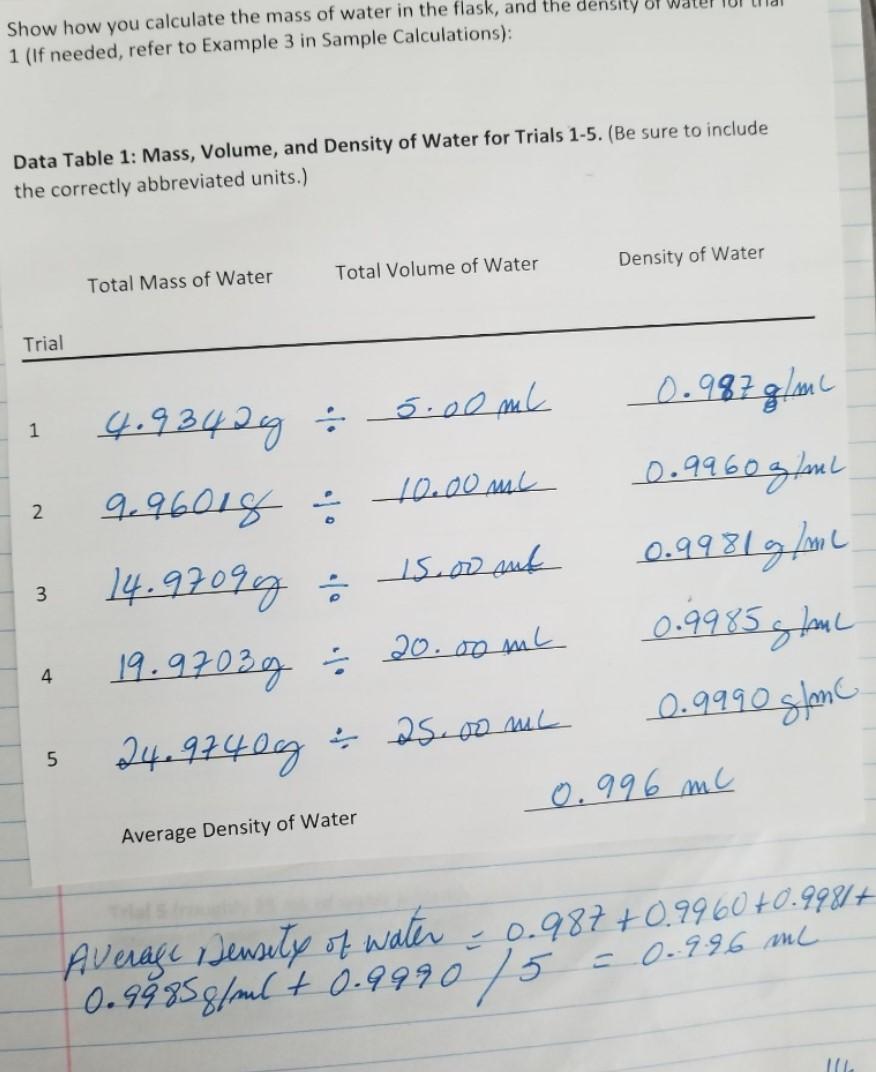 Show how you calculate the mass of water in the flask, and the density of water for trial
1 (If needed, refer to Example 3 in Sample Calculations):
Data Table 1: Mass, Volume, and Density of Water for Trials 1-5. (Be sure to include
the correctly abbreviated units.)
Total Mass of Water Total Volume of Water Density of Water
Trial
1 4.9342g ÷ 5.00 mL 0.987 g/mL
2 9.9601g ÷ 10.00 mL 0.9960 g/mL
3 14.9709g ÷ 15.00 mL 0.9981 g/mL
4 19.9703g ÷ 20.00 mL 0.9985 g/mL
5 24.9740g ÷ 25.00 mL 0.9990 g/mL
Average Density of Water 0.996 mL
Average Density of water = 0.987 + 0.9960 + 0.9981 +
0.9985 g/mL + 0.9990 / 5 = 0.996 mL